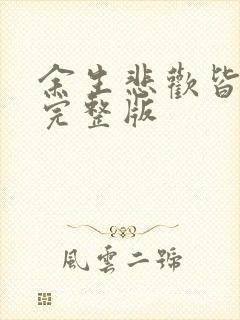 余生悲歡皆
完整版
風雲二號